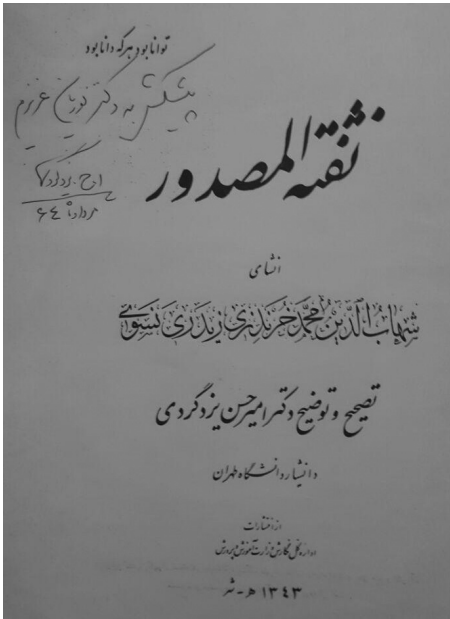 توانا بود هر که دانا بود
پیشکش به دکتر نوریان عزیزم
ا.ح. یزدگردی
مرداد ۶۴
نفثة المصدور
انشای
شهاب الدین محمد خرندزی زیدری نسوی
تصحیح و توضیح دکتر امیرحسن یزدگردی
دانشیار دانشگاه طهران
از انتشارات
اداره کل نگارش وزارت آموزش و پرورش
۱۳۴۳ هـ - ش